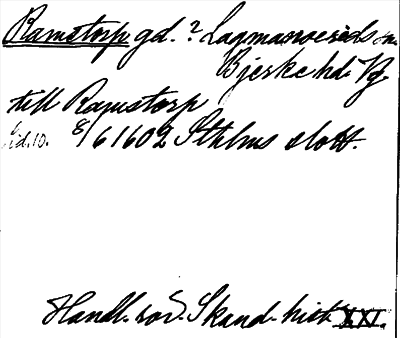 Ramstorp gd.? Lagmansereds sn.
Bjerke hd. Vg
till Ramstorp
sid.10. 8/6 1602 Sthlms slott.
Handl. rör. Skand. hist. XXI.